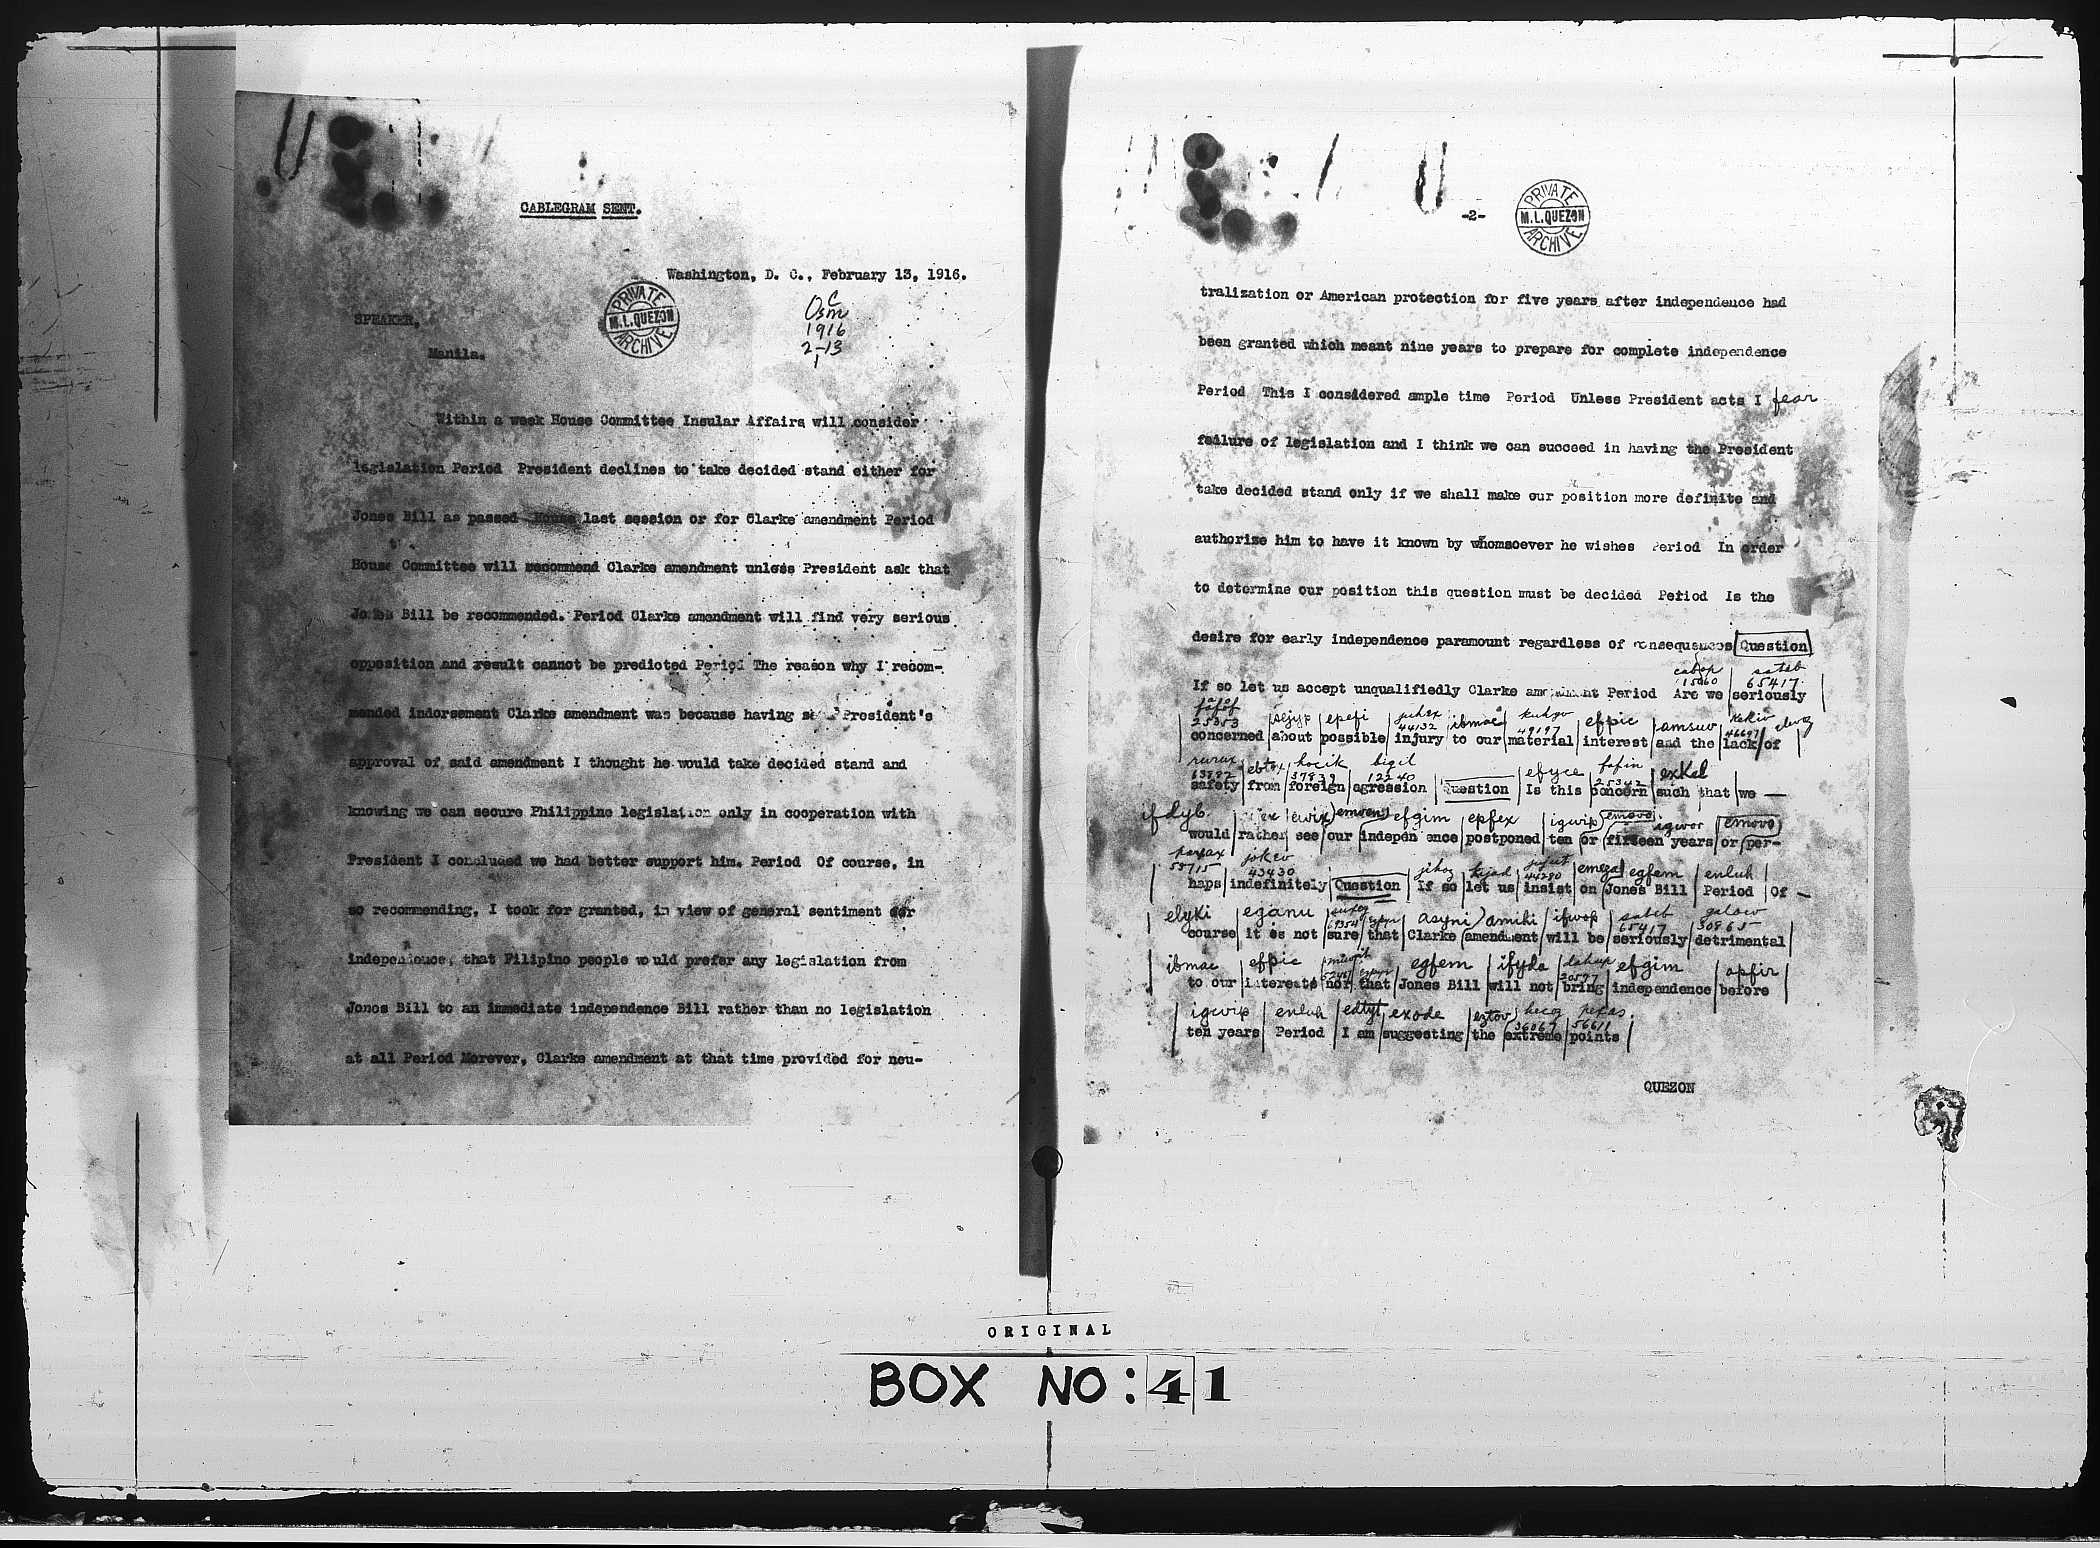 CABLEGRAM SENT.
Washington, D. C., February 13, 1916.
PRIVATE
M.L.QUEZON
ARCHIVE
C
Osm
1916
2-13
1
SPEAKER,
Manila.
Within a week House Committee Insular Affairs will consider
legislation Period President declines to take decided stand either for
Jones Bill as passed House last session or for Clarke amendment Period
House Committee will recommend Clarke amendment unless President ask that
Jones Bill be recommended. Period Clarke amendment will find very serious
opposition and result cannot be predicted Period The reason why I recom-
mended indorsement Clarke amendment was because having President's
approval of said amendment I thought he would take decided stand and
knowing we can secure Philippine legislation only in cooperation with
President I concluded we had better support him. Period Of course, in
so recommending, I took for granted, in view of general sentiment for
independence, that Filipino people would prefer any legislation from
Jones Bill to an immediate independence Bill rather than no legislation
at all Period Morever, Clarke amendment at that time provided for neu-
-2-
PRIVATE
M.L.QUEZON
ARCHIVE
tralization or American protection for five years after independence had
been granted which meant nine years to prepare for complete independence
Period This I considered ample time Period Unless President acts I fear
failure of legislation and I think we can succeed in having the President
take decided stand only if we shall make our position more definite and
authorize him to have it known by whomsoever he wishes Period In order
to determine our position this question must be decided Period Is the
desire for early independence paramount regardless of consequences Question
cabop sateb
15060 65417
If so let us accept unqualifiedly Clarke amendment Period Are we seriously
fafof epefi juhex ibmac kuhgo efpic amsuv kekiv
25353 44132 49197 46697
concerned about possible injury to our material interest and the lack of
rurax hocik bigil efyce fafin exkal
63882 37839 12240 25342
safety from foreign agression Question Is this concern such that we —
ifdyb efgim epfex igwip emovo igwor emovo
would rather see our independence postponed ten or fifteen years or per-
jokev
55715 43430 44280 egfem enluh
haps indefinitely Question If so let us insist on Jones Bill Period Of —
elyki eganu asyni amihi ifwop sateb galaev
69354 65417 30865
course it is not sure that Clarke amendment will be seriously detrimental
ibmac effic egfem ifyda efgim apfir
to our interests nor that Jones Bill will not bring independence before
igwip enluh edtyt exode eztov hecoz pekas
36067 56611
ten years Period I am suggesting the extreme points
QUEZON
ORIGINAL
BOX NO: 41